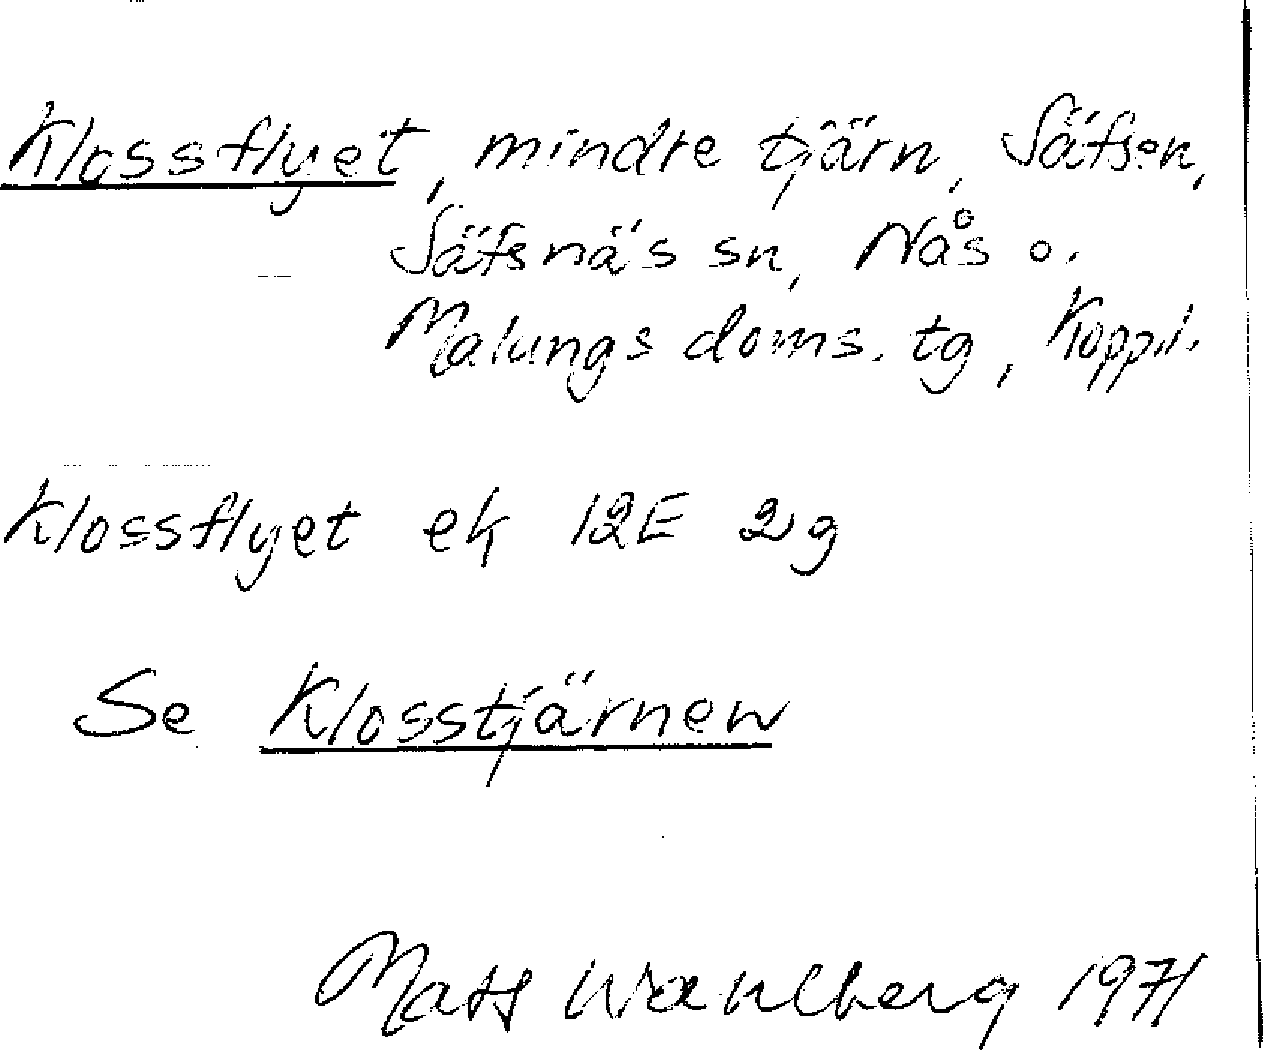 Klossflyet, mindre tjärn, Säfsen,
Säfsnäs sn, Nås o.
Malungs doms. tg, Kopp.l.
Klossflyet ek 12E 2g
Se Klosstjärnen
Mats Wahlberg 1971